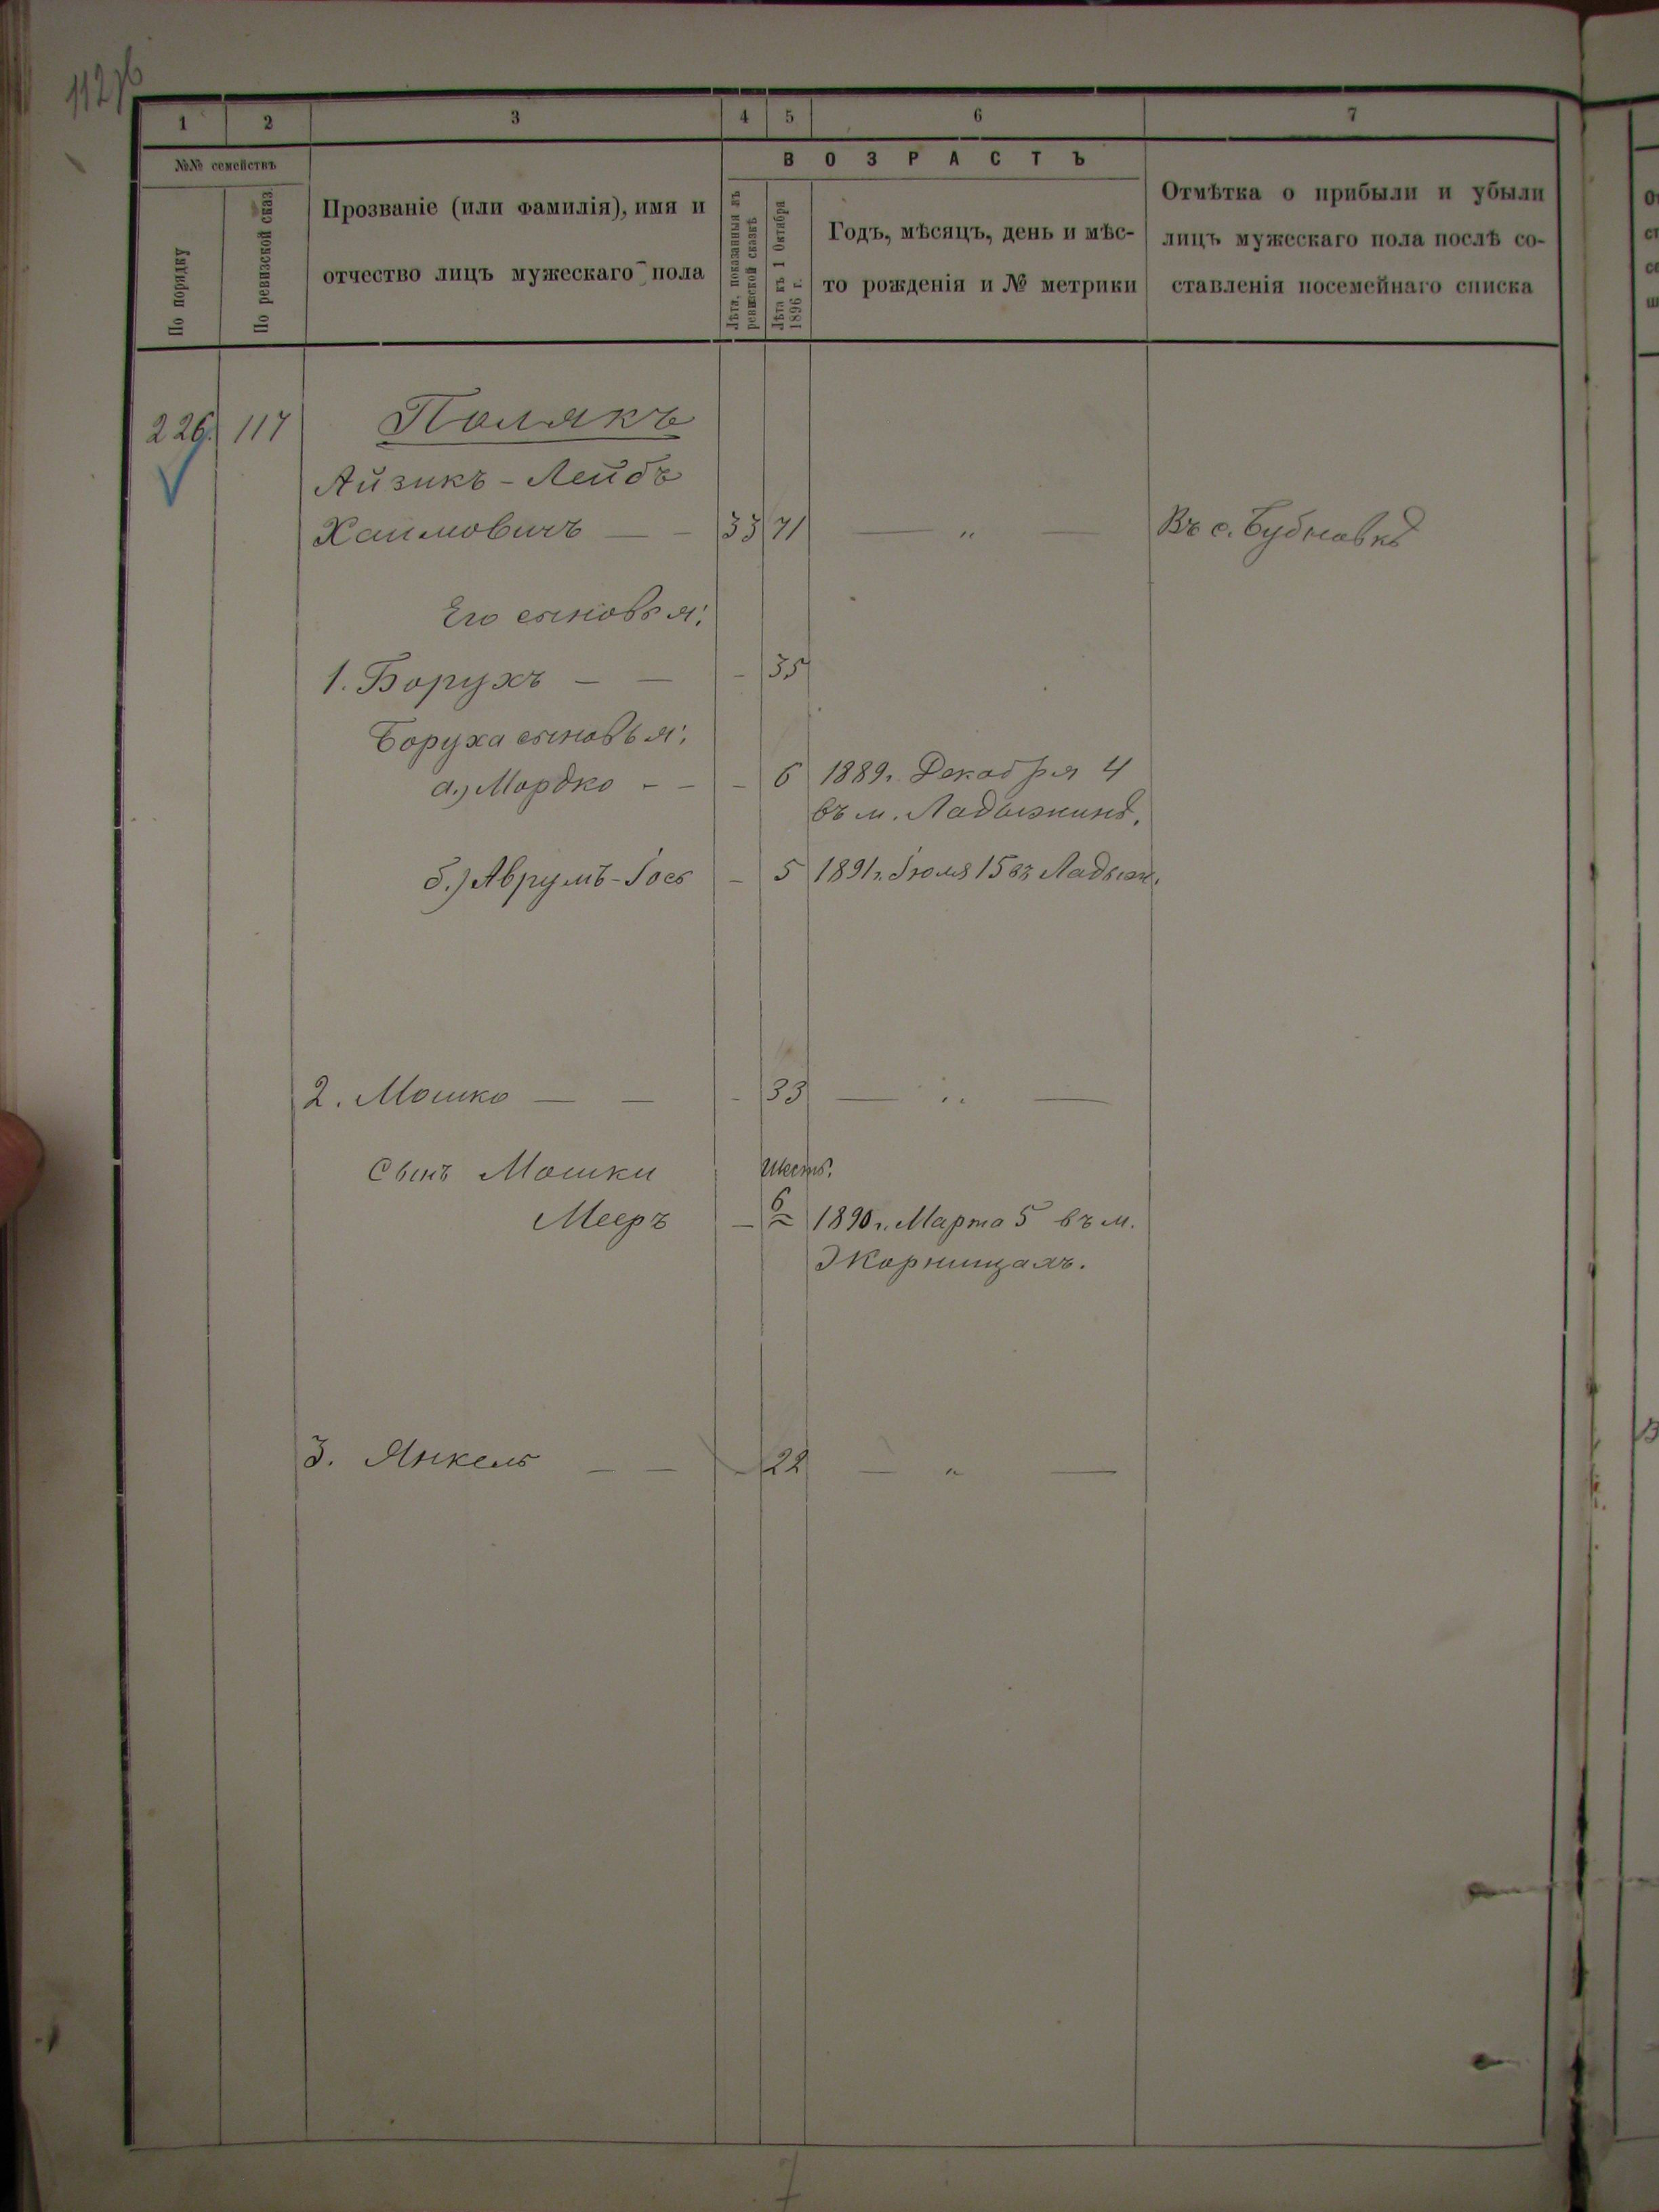 112 об
1 2 3 4 5 6 7
№№ семействъ
По порядку
По ревизской сказ.
Прозваніе (или фамилія), имя и
отчество лицъ мужескаго пола
ВОЗРАСТЪ
Лѣта, показанныя въ
ревизской сказкѣ
Лѣта къ 1 Октября
1896 г.
Годъ, мѣсяцъ, день и мѣс-
то рожденія и № метрики
Отмѣтка о прибыли и убыли
лицъ мужескаго пола послѣ со-
ставленія посемейнаго списка
226. 117 Полякъ
Айзикъ-Лейбъ
Хаимовичъ — - 33 71 — „ — Въ с. Бубновкѣ
Его сыновья:
1. Борухъ - — - 35
Боруха сыновья:
а.) Мордко - - - 6 1889 г. Декабря 4
въ м. Ладыжинѣ.
б.) Аврумъ-Іось - 5 1891 г. Іюля 15 въ Ладыж.
2. Мошко — — - 33 — „ —
Сынъ Мошки Шесть.
Мееръ - 6 1890 г. Марта 5 въ м.
Жорнищахъ.
3. Янкель — — - 22 — „ —
7